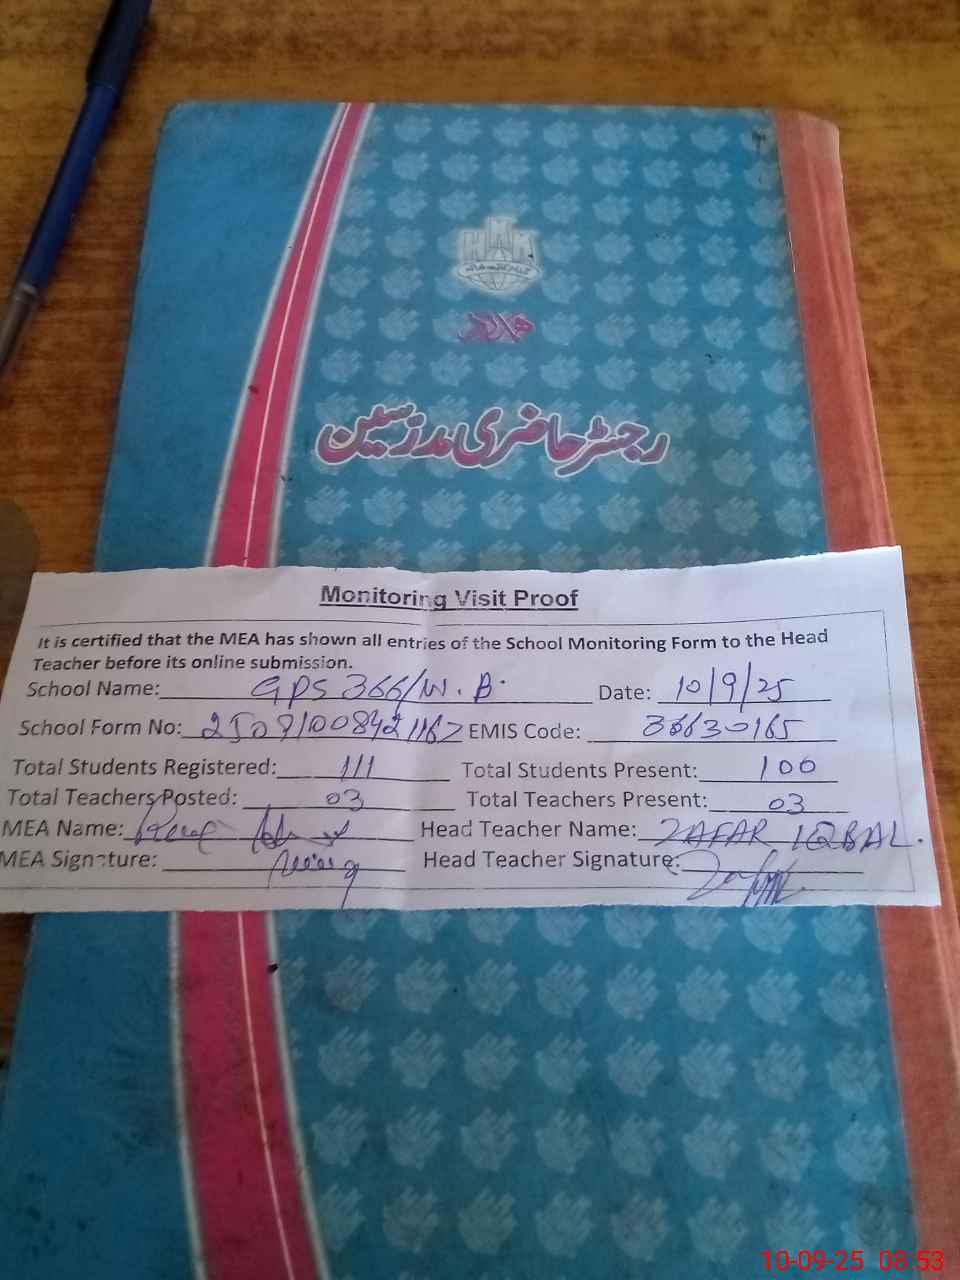 ھمدرد
رجسٹر حاضری مدرسین
Monitoring Visit Proof
It is certified that the MEA has shown all entries of the School Monitoring Form to the Head
Teacher before its online submission.
School Name: GPS 366/W.B. Date: 10/9/25
School Form No: EMIS Code: 36630165
Total Students Registered: 111 Total Students Present: 100
Total Teachers Posted: 03 Total Teachers Present: 03
MEA Name: Head Teacher Name: ZAFAR IQBAL.
MEA Signature: Head Teacher Signature:
10-09-25 08:53